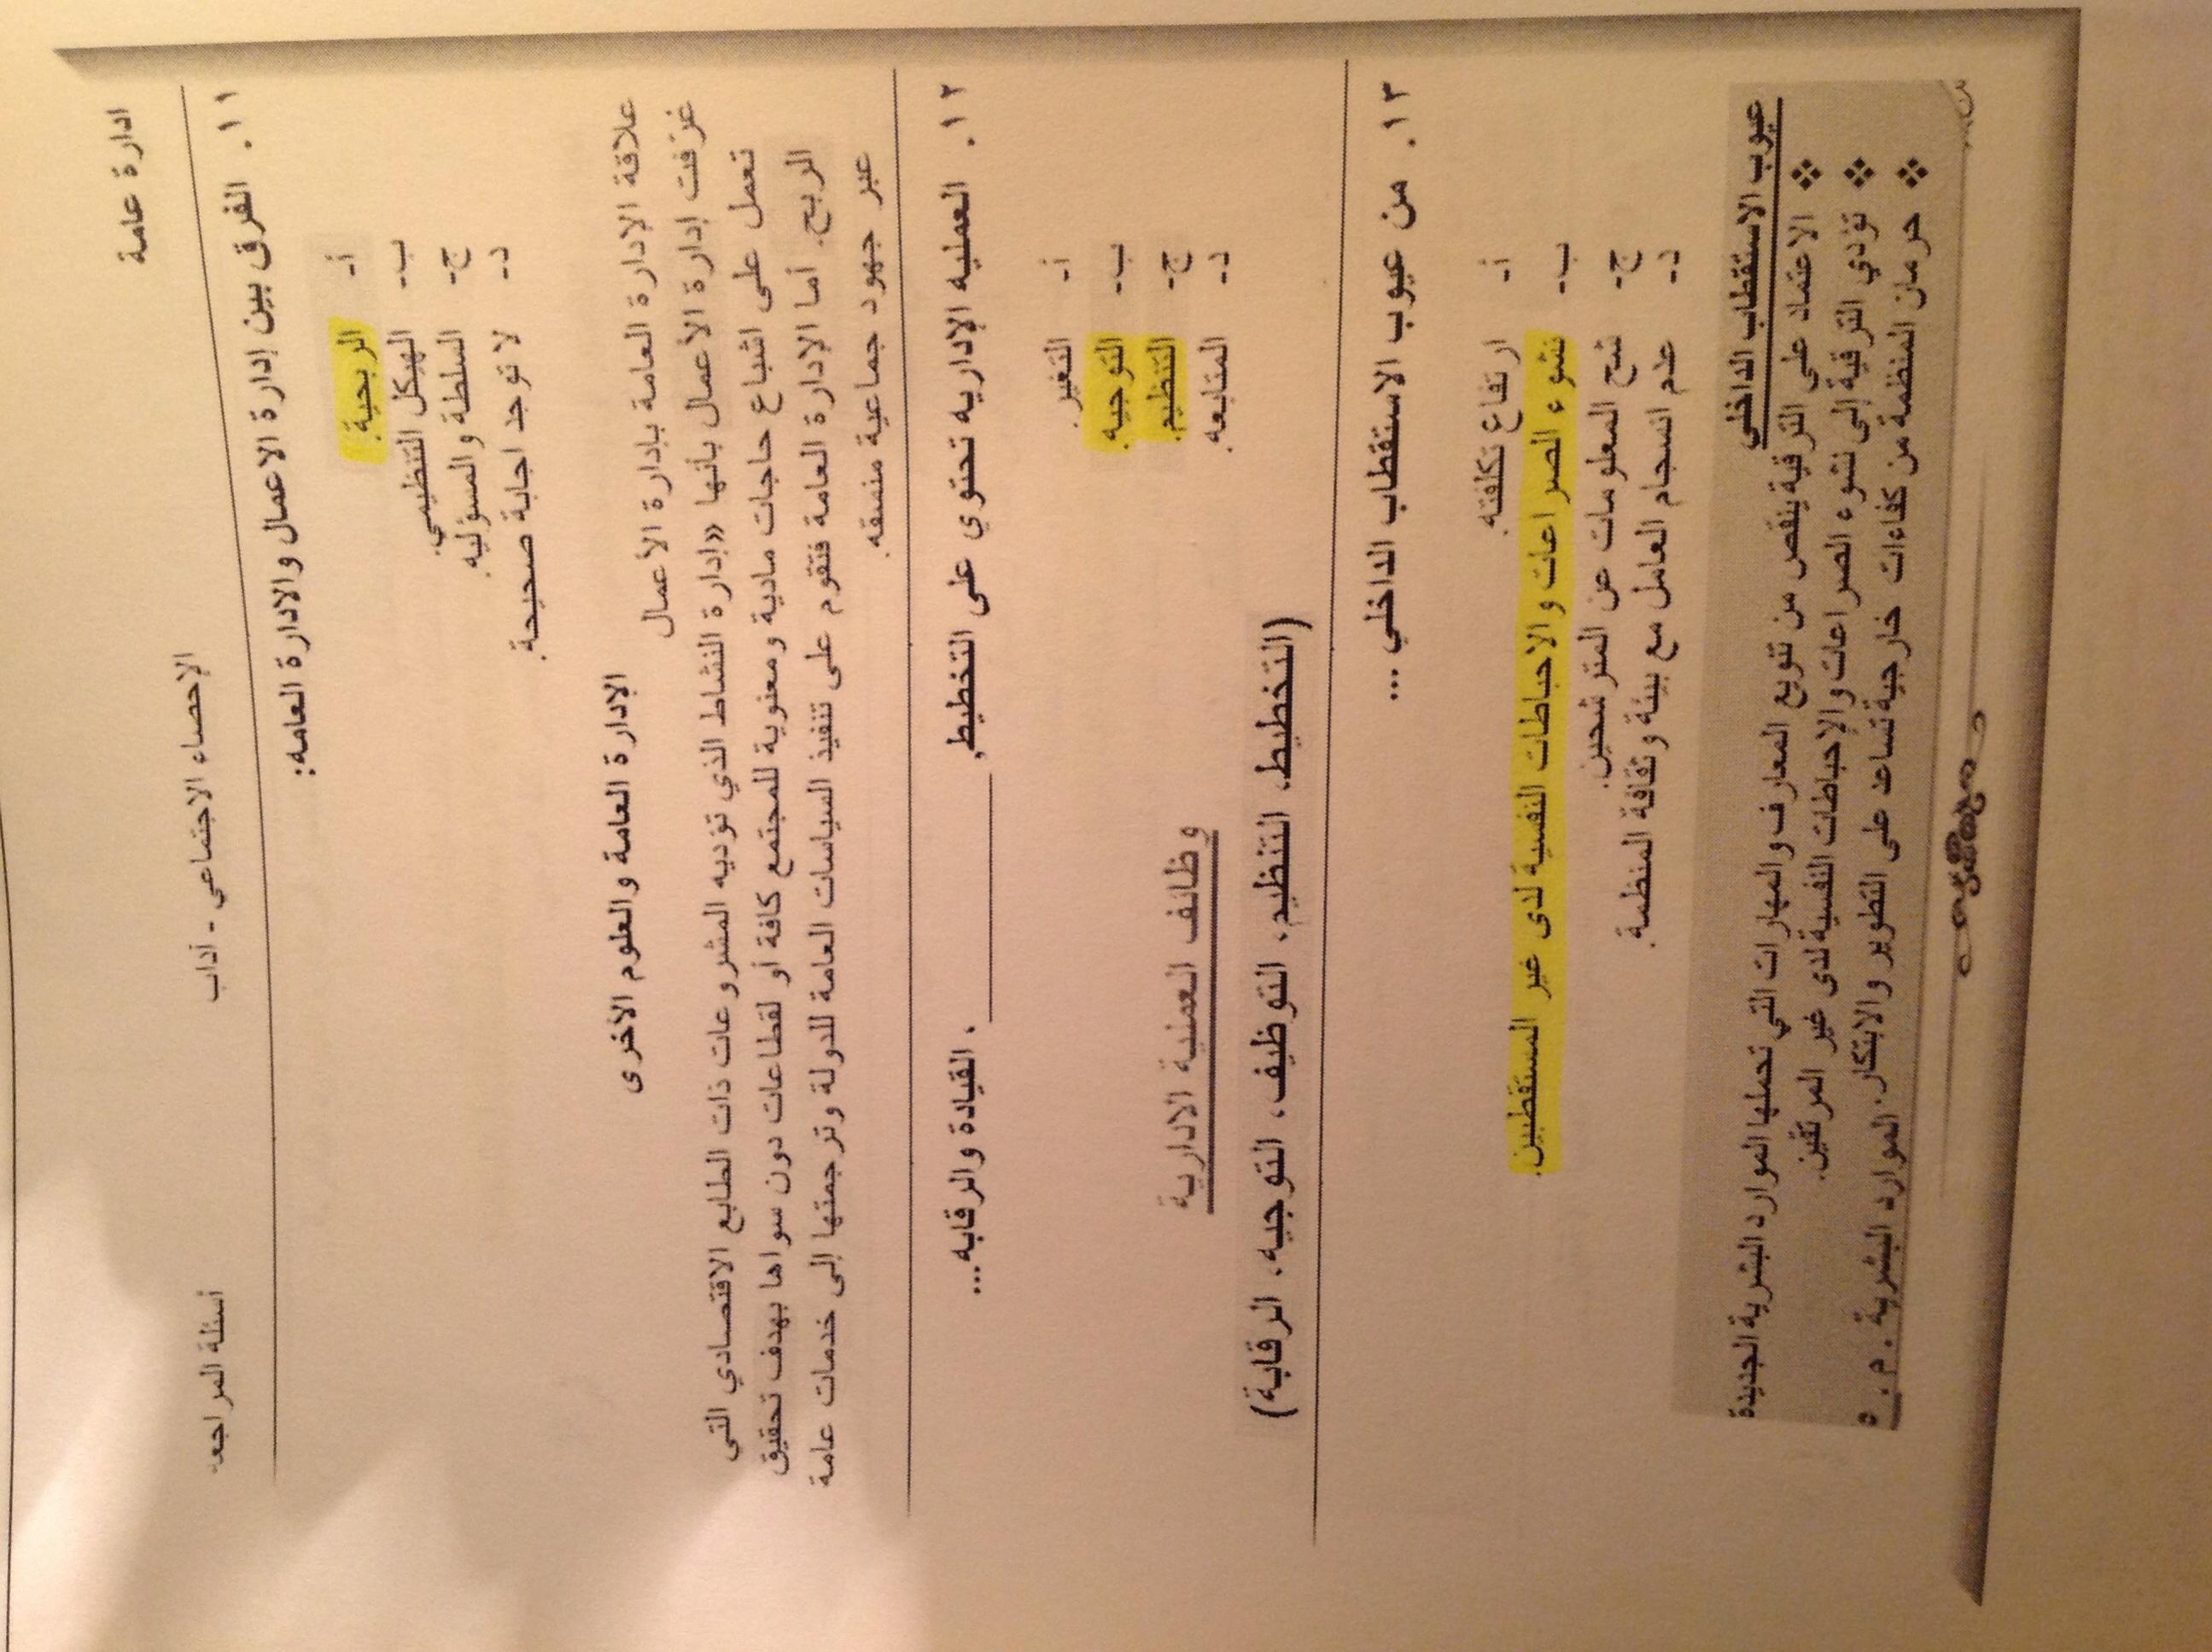 ادارة عامة
الإحصاء الاجتماعي - آداب
أسئلة المراجعه
١١. الفرق بين إدارة الاعمال والادارة العامه:
أ- الربحية.
ب- الهيكل التنظيمي.
ج- السلطة والمسؤليه.
د- لا توجد اجابة صحيحة.
الإدارة العامة والعلوم الأخرى
علاقة الإدارة العامة بإدارة الأعمال
عرّفت إدارة الأعمال بأنها «إدارة النشاط الذي تؤديه المشروعات ذات الطابع الاقتصادي التي
تعمل على اشباع حاجات مادية ومعنوية للمجتمع كافة أو لقطاعات دون سواها بهدف تحقيق
الربح. أما الإدارة العامة فتقوم على تنفيذ السياسات العامة للدولة وترجمتها إلى خدمات عامة
عبر جهود جماعية منسقه.
١٢. العمليه الإداريه تحتوي على التخطيط, ________ ، القيادة والرقابه...
أ- التغير.
ب- التوجيه.
ج- التنظيم.
د- المتابعه.
وظائف العملية الادارية
(التخطيط، التنظيم، التوظيف، التوجيه، الرقابة)
١٣. من عيوب الاستقطاب الداخلي ...
أ- ارتفاع تكلفته.
ب- نشوء الصراعات والاحباطات النفسية لدى غير المستقطبين.
ج- شح المعلومات عن المترشحين.
د- عدم انسجام العامل مع بيئة وثقافة المنظمة.
عيوب الاستقطاب الداخلي
❖ الاعتماد على الترقية ينقص من تنويع المعارف والمهارات التي تحملها الموارد البشرية الجديدة
❖ تؤدي الترقية إلى نشوء الصراعات والإحباطات النفسية لدى غير المرتقين.
❖ حرمان المنظمة من كفاءات خارجية تساعد على التطوير والابتكار. الموارد البشرية . م.٥